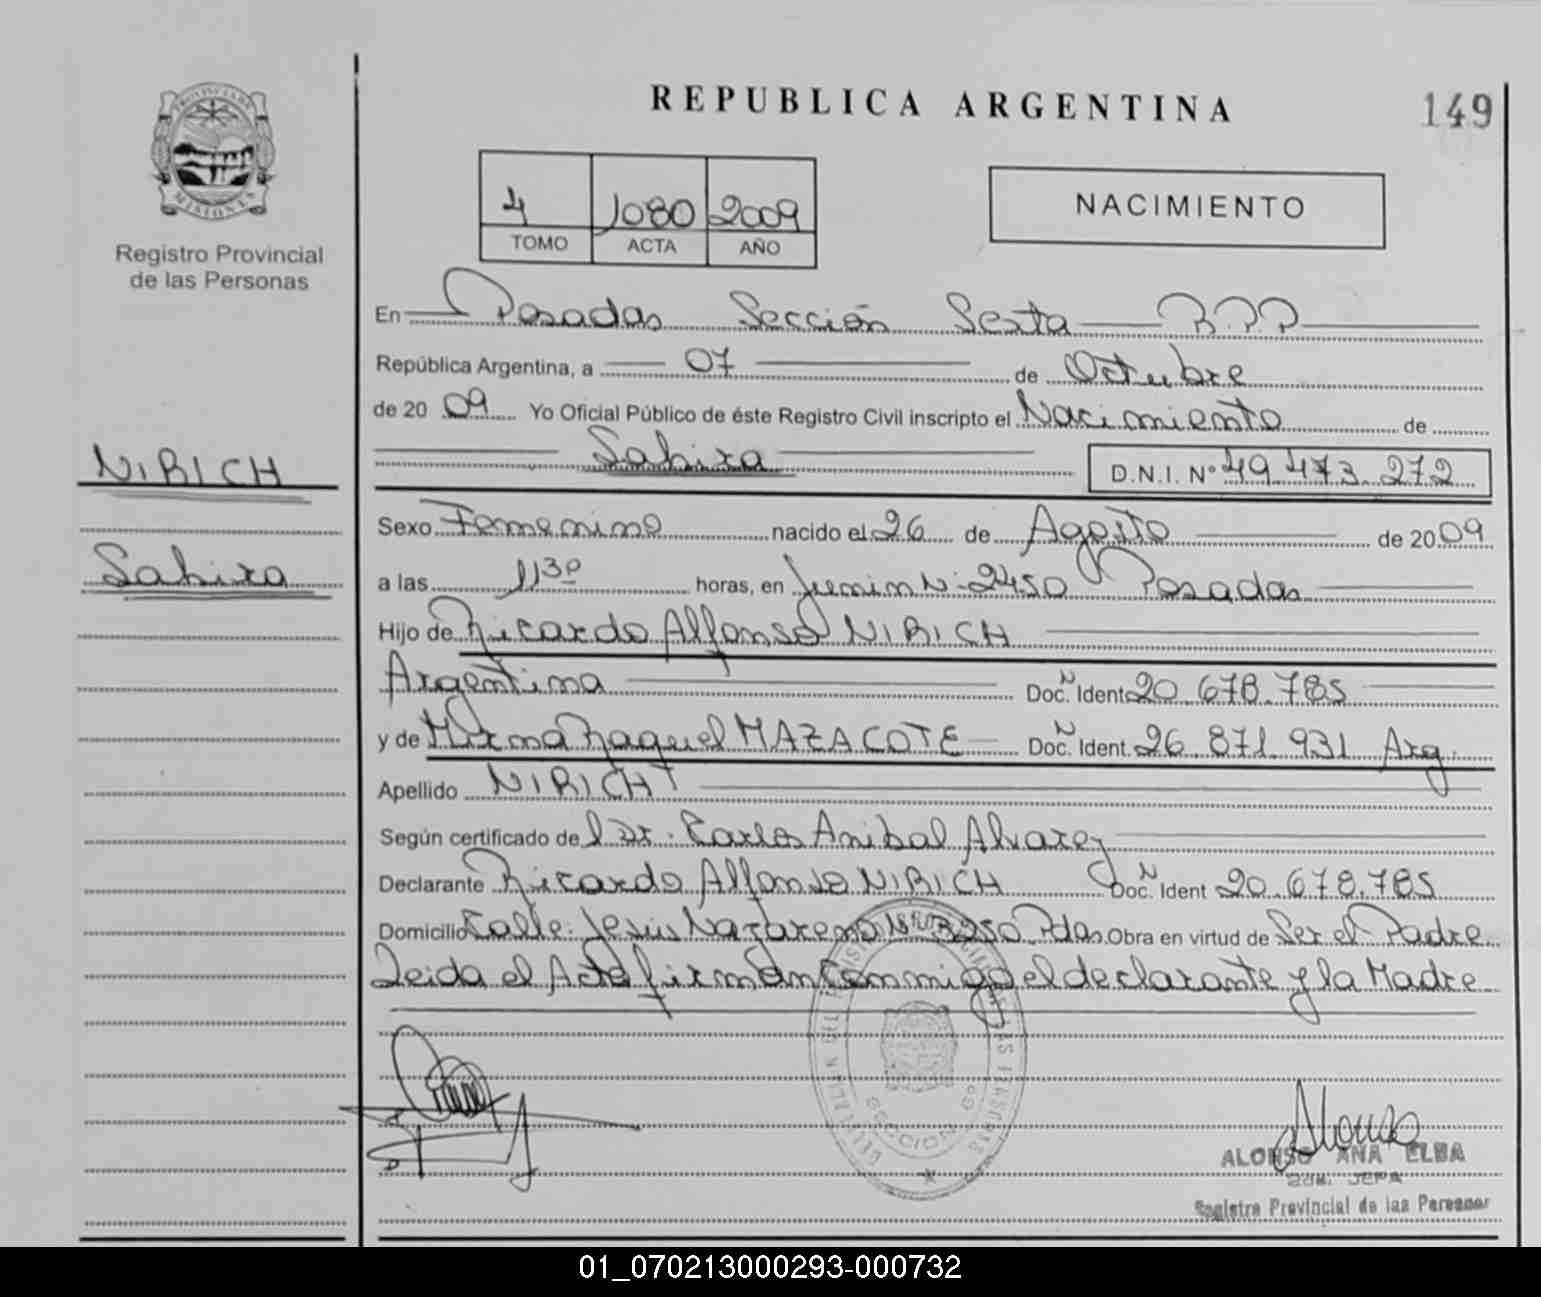 REPUBLICA ARGENTINA
149
PROVINCIA DE
MISIONES
Registro Provincial
de las Personas
4 1080 2009
TOMO ACTA AÑO
NACIMIENTO
En Posadas Sección Sexta
República Argentina, a 07 de Octubre
de 20 09 Yo Oficial Público de éste Registro Civil inscripto el Nacimiento de
Sahira D.N.I. Nº 49 473 272
NIRICH
Sahira
Sexo Femenino nacido el 26 de Agosto de 20 09
a las 11 30 horas, en Junin Nº 2450 Posadas
Hijo de Ricardo Alfonso NIRICH
Argentina Doc. N Ident. 20.678.785
y de Mirna Raquel MAZACOTE Doc. N Ident. 26.871.931 Arg.
Apellido NIRICH
Según certificado de l Dr. Carlos Anibal Alvarez
Declarante Ricardo Alfonso NIRICH Doc. N Ident 20.678.785
Domicilio Calle Jesús Nazareno Nº 3250 Pdas. Obra en virtud de Ser el Padre
Leida el Acta firman conmigo el declarante y la Madre
SECCION 6º
Alonso
ALONSO ANA ELBA
SUB. JEFA
Registro Provincial de las Personas
01_070213000293-000732